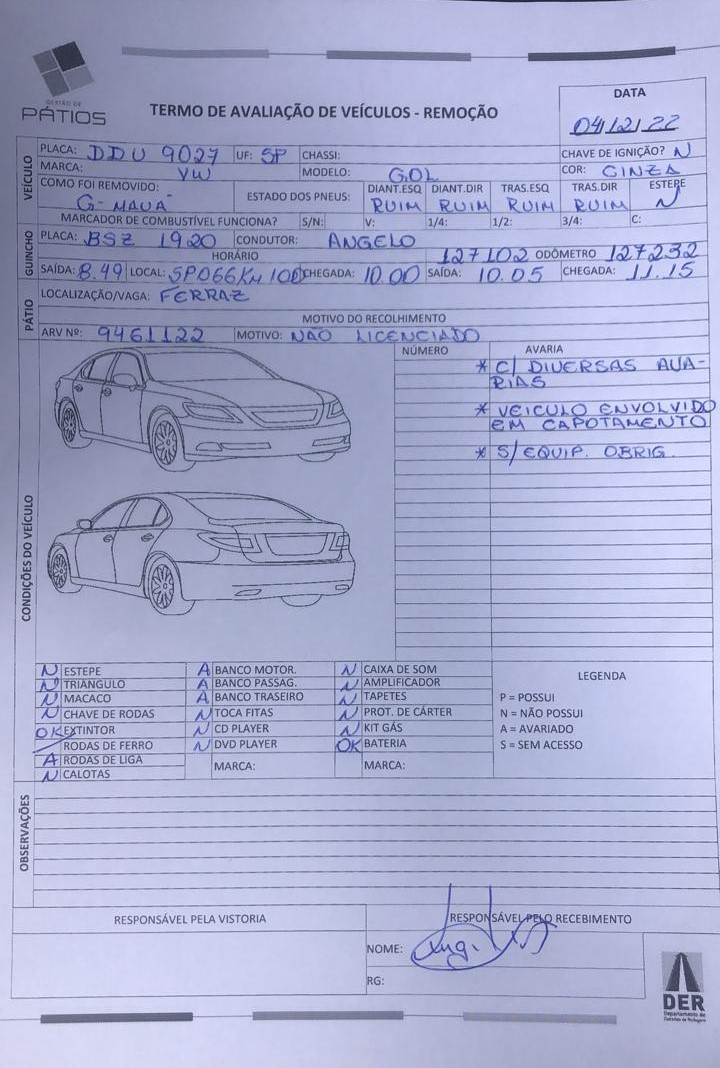 GESTÃO DE
PÁTIOS
TERMO DE AVALIAÇÃO DE VEÍCULOS - REMOÇÃO
DATA
04/12/22
VEÍCULO
PLACA: DDU 9027 UF: SP CHASSI: CHAVE DE IGNIÇÃO? N
MARCA: VW MODELO: GOL COR: CINZA
COMO FOI REMOVIDO: G-MAUÁ ESTADO DOS PNEUS: DIANT.ESQ RUIM DIANT.DIR RUIM TRAS.ESQ RUIM TRAS.DIR RUIM ESTEPE N
MARCADOR DE COMBUSTÍVEL FUNCIONA? S/N: V: 1/4: 1/2: 3/4: C:
GUINCHO
PLACA: BSZ 1920 CONDUTOR: ANGELO
HORÁRIO 127102 ODÔMETRO 127232
SAÍDA: 8.49 LOCAL: SP066 KM 100 CHEGADA: 10.00 SAÍDA: 10.05 CHEGADA: 11.15
PÁTIO
LOCALIZAÇÃO/VAGA: FERRAZ
MOTIVO DO RECOLHIMENTO
ARV Nº: 9461122 MOTIVO: NÃO LICENCIADO
CONDIÇÕES DO VEÍCULO
NÚMERO AVARIA
* C/ DIVERSAS AVA-
RIAS
* VEICULO ENVOLVIDO
EM CAPOTAMENTO
* S/ EQUIP. OBRIG.
N ESTEPE A BANCO MOTOR. N CAIXA DE SOM
N TRIANGULO A BANCO PASSAG. N AMPLIFICADOR
N MACACO A BANCO TRASEIRO N TAPETES
N CHAVE DE RODAS N TOCA FITAS N PROT. DE CÁRTER
OK EXTINTOR N CD PLAYER N KIT GÁS
RODAS DE FERRO N DVD PLAYER OK BATERIA
A RODAS DE LIGA MARCA: MARCA:
N CALOTAS
LEGENDA
P = POSSUI
N = NÃO POSSUI
A = AVARIADO
S = SEM ACESSO
OBSERVAÇÕES
RESPONSÁVEL PELA VISTORIA RESPONSÁVEL PELO RECEBIMENTO
NOME:
RG:
DER
Departamento de
Estradas de Rodagem